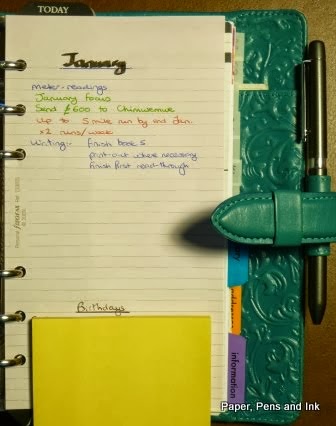 TODAY
January
meter-readings
January focus
Send £600 to Chimwemwe
Up to 5 mile run by end Jan.
x2 runs/week
Writing:- finish book 5
print-out where necessary
finish first read-through
Birthdays
information
Personal filofax
Paper, Pens and Ink